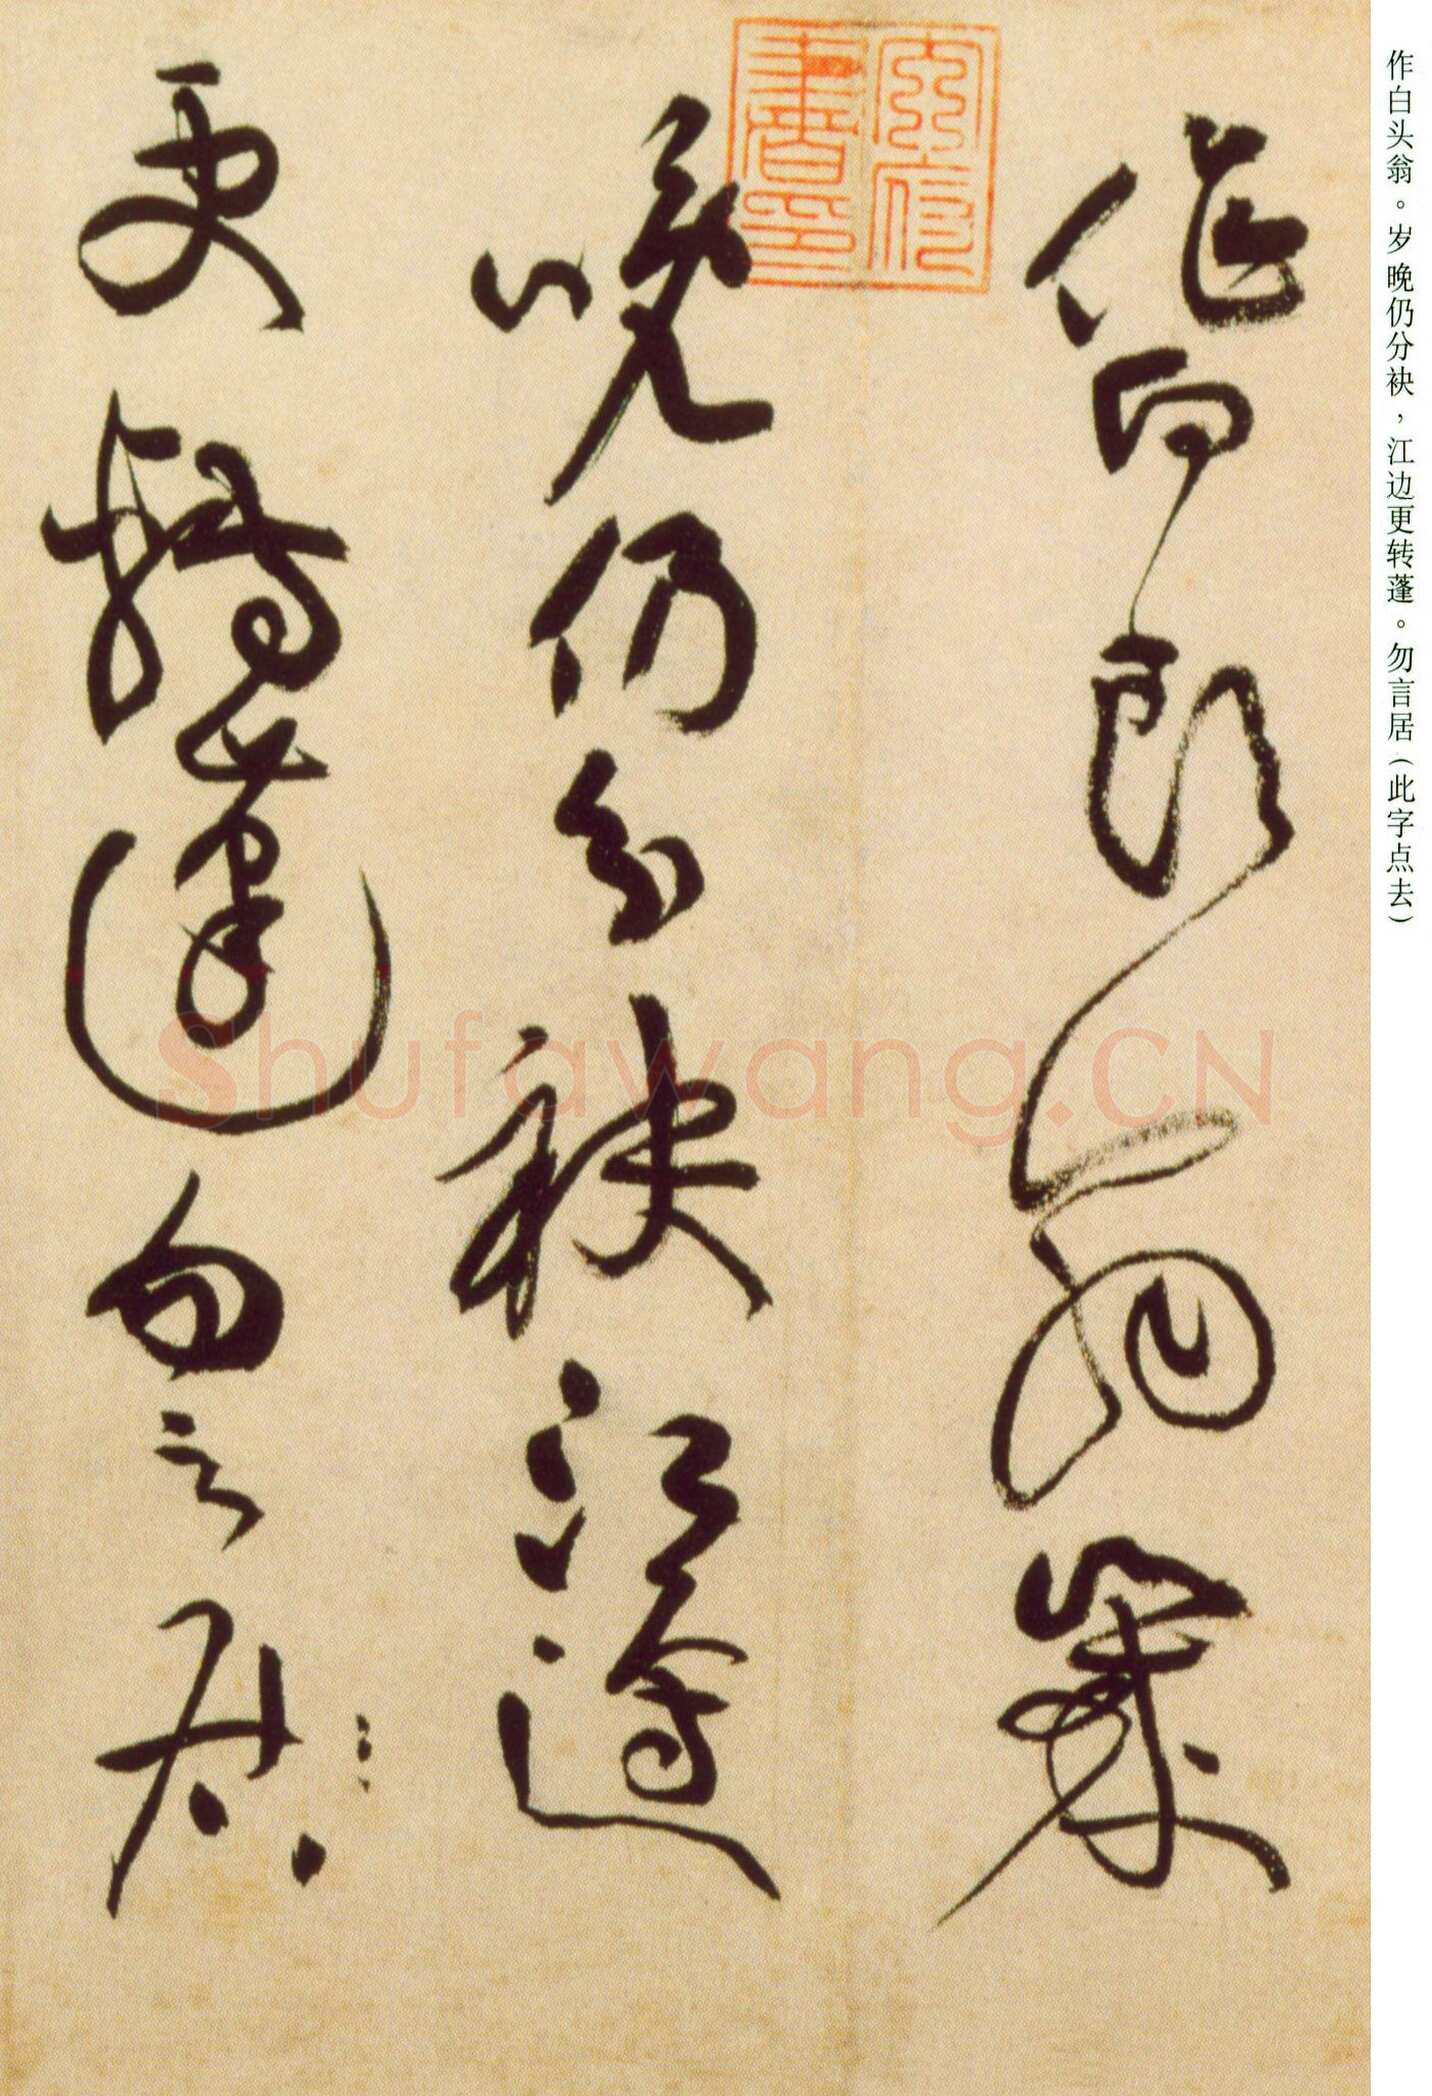 作白头翁。岁晚仍分袂，江边更转蓬。勿言居（此字点去）
作白頭翁歲
晚仍分袂江邊
更轉蓬勿言居
Shufawang.CN